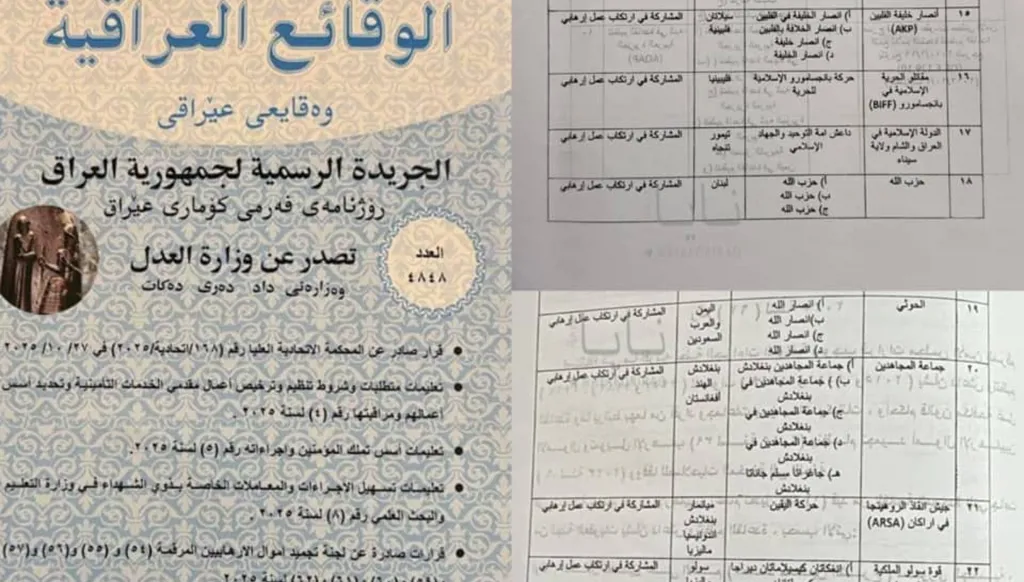 الوقائع العراقية
وەقایعی عێراقی
الجريدة الرسمية لجمهورية العراق
ڕۆژنامەی فەرمی کۆماری عێراق
تصدر عن وزارة العدل
وەزارەتی داد دەری دەکات
العدد
٤٨٤٨
قرار صادر عن المحكمة الاتحادية العليا رقم (١٦٨/اتحادية/٢٠٢٥) في ٢٧/ ١٠/ ٢٠٢٥
تعليمات متطلبات وشروط تنظيم وترخيص أعمال مقدمي الخدمات التأمينية وتحديد أسس
أعمالهم ومراقبتها رقم (٤) لسنة ٢٠٢٥ .
تعليمات أسس تملك المؤمنين واجراءاته رقم (٥) لسنة ٢٠٢٥.
تعليمات تسهيل الاجراءات والمعاملات الخاصة بذوي الشهداء في وزارة التعليم
والبحث العلمي رقم (٨) لسنة ٢٠٢٥
قرارات صادرة عن لجنة تجميد اموال الارهابيين المرقمة (٥٤) و (٥٥) و(٥٦) و(٥٧)
١٥ أنصار خليفة الفلبين أ) انصار الخليفة في الفلبين المشاركة في ارتكاب عمل إرهابي
(AKP) ب) انصار الخلافة بالفلبين فلبينية
ج) انصار خليفة
د) انصار الخليفة
١٦ مقاتلو الحرية حركة بانجسامورو الإسلامية فليبينيا المشاركة في ارتكاب عمل إرهابي
الإسلامية في للحرية
بانجسامورو (BIFF)
١٧ الدولة الإسلامية في داعش امة التوحيد والجهاد تيمور المشاركة في ارتكاب عمل إرهابي
العراق والشام ولاية الإسلامي تنجاه
سيناء
١٨ حزب الله أ) حزب الله لبنان المشاركة في ارتكاب عمل إرهابي
ب) حزب الله
ج) حزب الله
١٩ الحوثي أ) انصار الله اليمن المشاركة في ارتكاب عمل إرهابي
ب)انصار الله والعرب
ج) انصار الله السعودين
د) انصار الله
٢٠ جماعة المجاهدين أ) جماعة المجاهدين بنغلادش بنغلادش المشاركة في ارتكاب عمل إرهابي
ب) جماعة المجاهدين في الهند
بنغلادش أفغانستان
ج) جماعة المجاهدين في
بنغلادش
د) جماعة المجاهدين في
بنغلادش
هـ) جاغراتا مسلم جاناتا
بنغلادش
٢١ جيش انقاذ الروهينجا حركة اليقين ميانمار المشاركة في ارتكاب عمل إرهابي
في اراكان (ARSA) بنغلادش
اندونيسيا
ماليزيا
٢٢ قوة سولو الملكية سولو المشاركة في ارتكاب عمل إرهابي